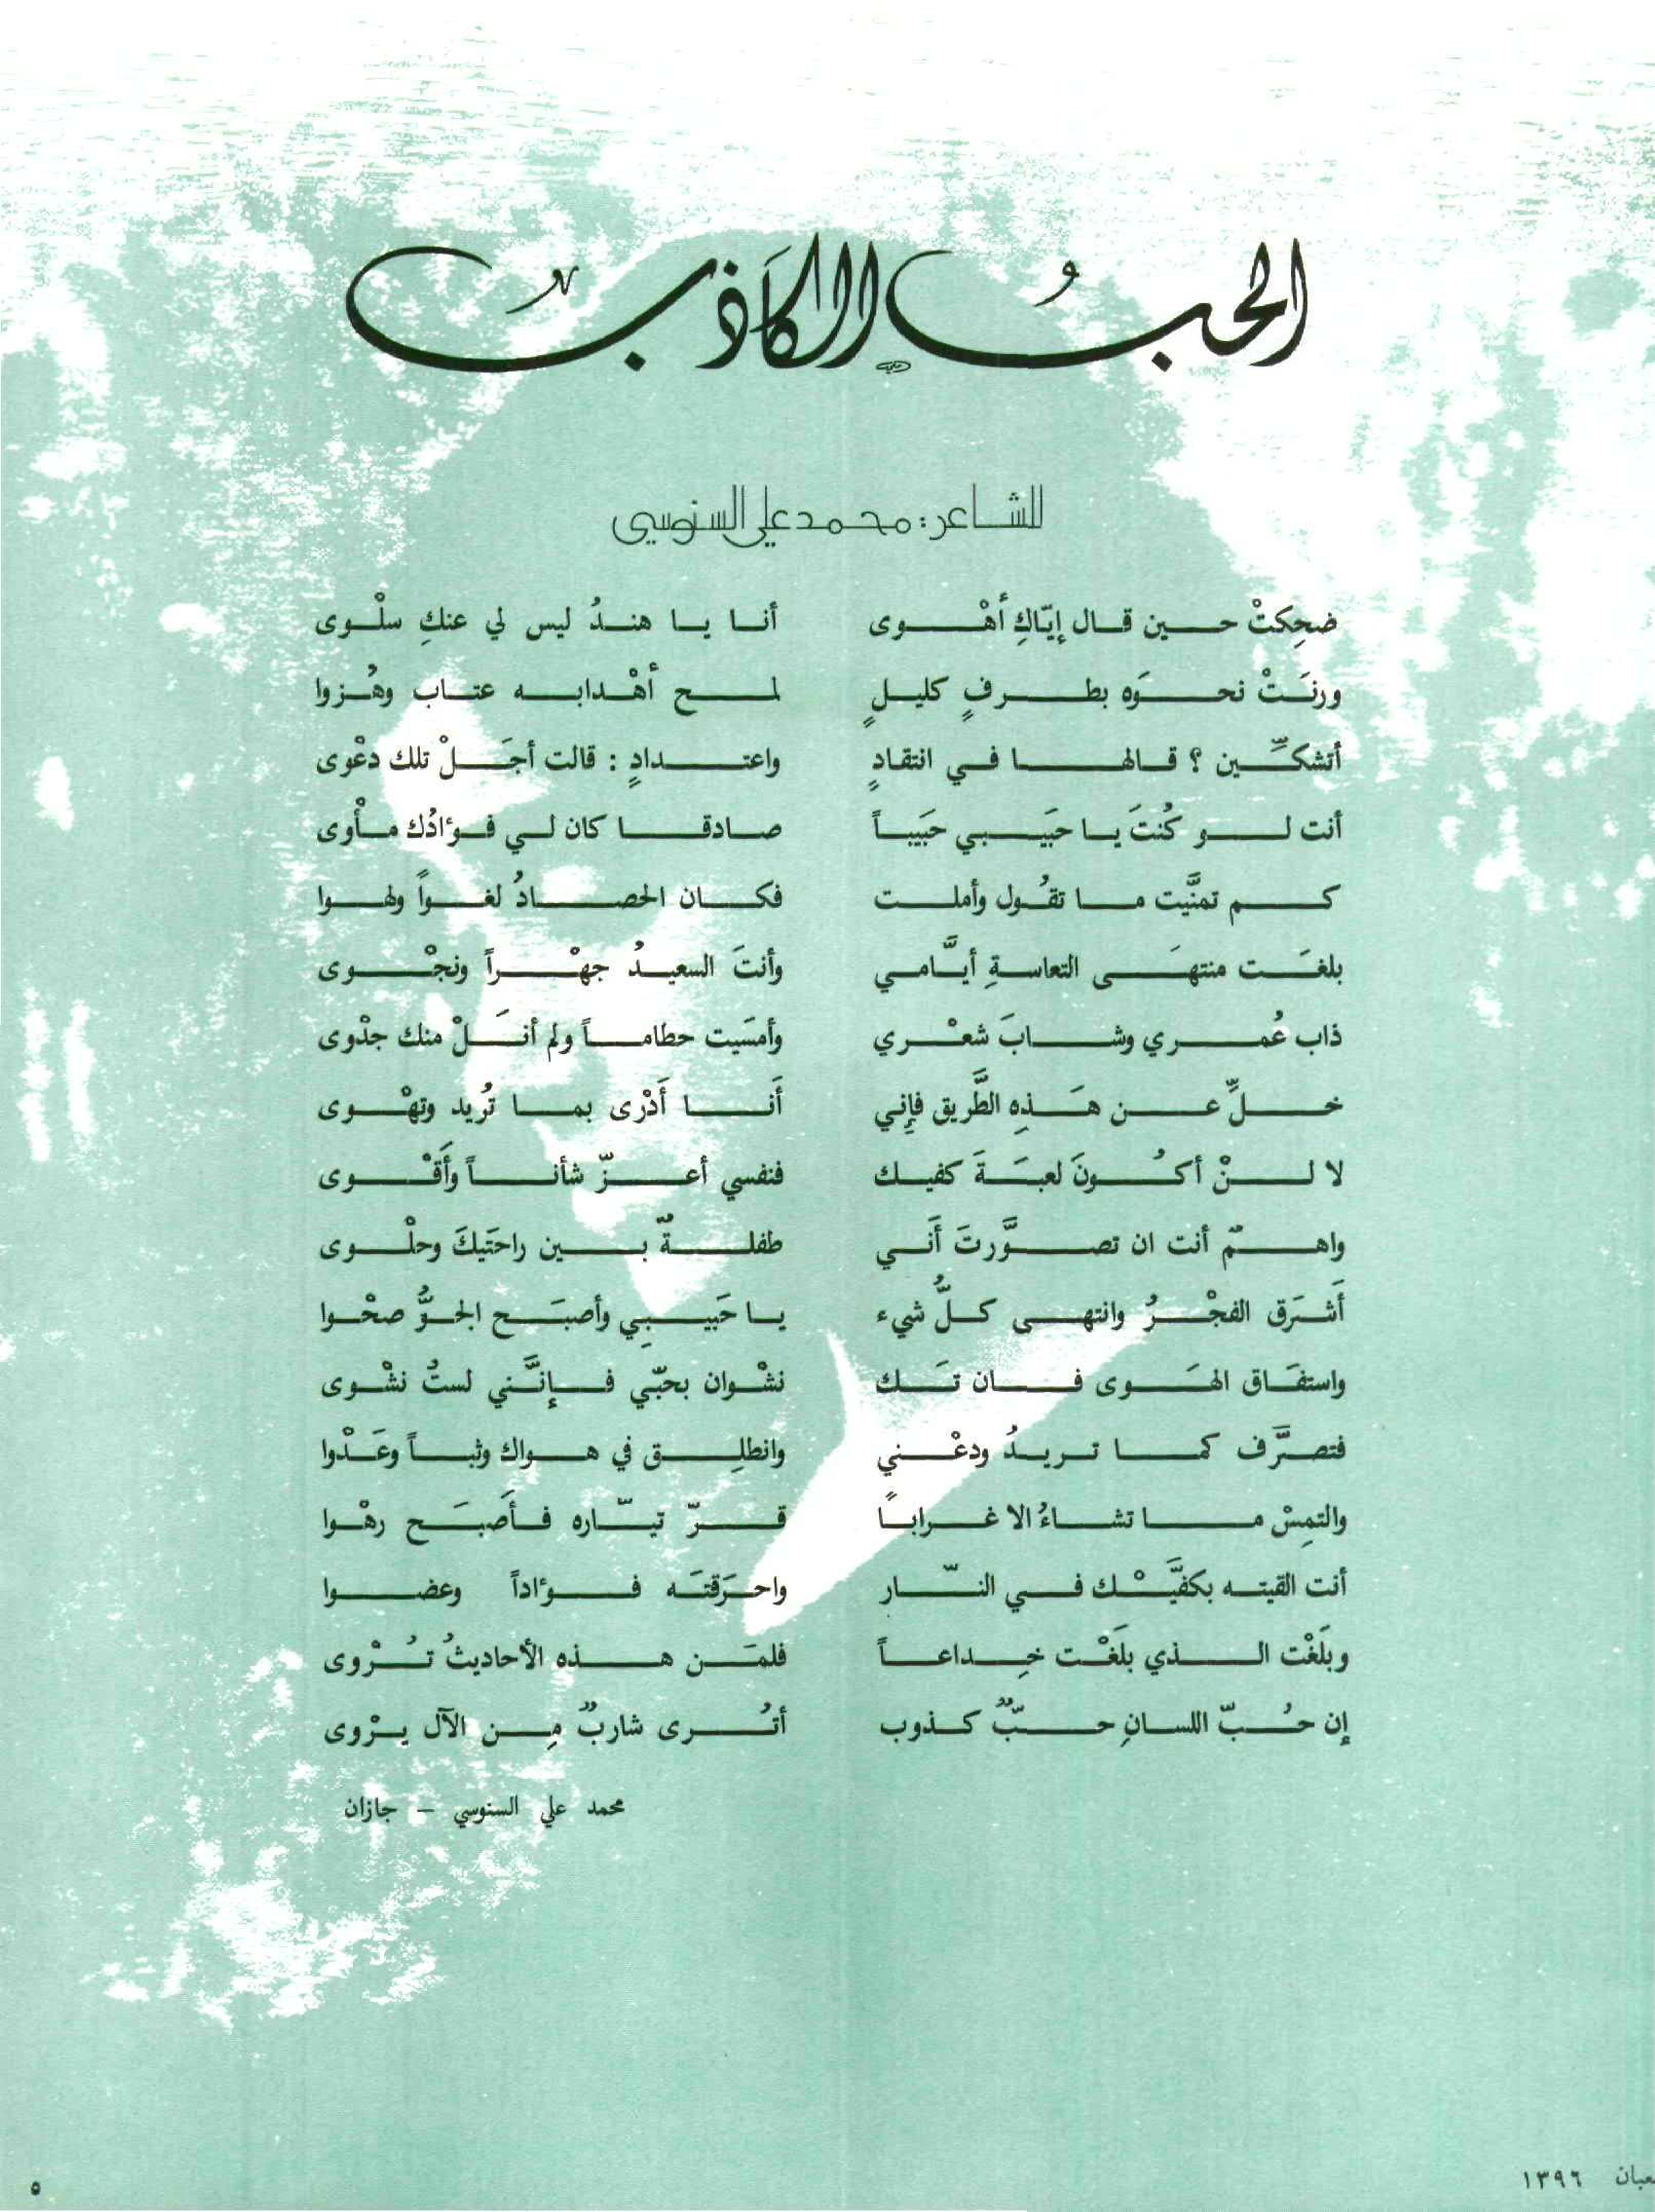 الحبُّ الكَاذبُ
للشاعر: محمد علي السنوسي
ضحِكتْ حين قال إيّاكِ أهْوى أنا يا هندُ ليس لي عنكِ سلْوى
ورنَتْ نحوَه بطرفٍ كليلٍ لمح أهْدابه عتاب وهُزوا
أتشكِّين ؟ قالها في انتقادٍ واعتدادٍ : قالت أجَلْ تلك دعْوى
أنت لو كُنتَ يا حبَيبي حبَيباً صادقا كان لي فؤادُك مأْوى
كم تمنَّيت ما تقُول وأملت فكان الحصادُ لغواً ولهوا
بلغَت منتهَى التعاسةِ أيَّامي وأنتَ السعيدُ جهْراً ونجْوى
ذاب عُمري وشابَ شعْري وأمسَيت حطاماً ولم أنَلْ منك جدْوى
خلِّ عن هَذِه الطَّريق فإِني أَنا أَدْرى بما تُريد وتهْوى
لا لنْ أكُونَ لعبَةَ كفيك فنفسي أعزّ شأناً وأَقْوى
واهمٌ أنت ان تصوَّرتَ أَني طفلةٌ بين راحتَيكَ وحلْوى
أَشرَق الفجْرُ وانتهى كلُّ شيء يا حَبيبِي وأصبَح الجوُّ صحْوا
واستفَاق الهَوى فان تَك نشْوان بحبّي فإنَّني لستُ نشْوى
فتصرَّف كما تريدُ ودعْني وانطلِق في هواك وثباً وعَدْوا
والتمِسْ ما تشاءُ الا غراباً قرّ تيّاره فأصَبَح رهْوا
أنت القيته بكفَّيْك في النّار واحرَقتَه فؤاداً وعضوا
وبلَغْت الذي بلَغْت خِداعاً فلمَن هذه الأحاديثُ تُرْوى
إن حُبّ اللسانِ حبٌّ كذوب أتُرى شاربٌ مِن الآل يرْوى
محمد علي السنوسي – جازان
عبان ١٣٩٦
٥